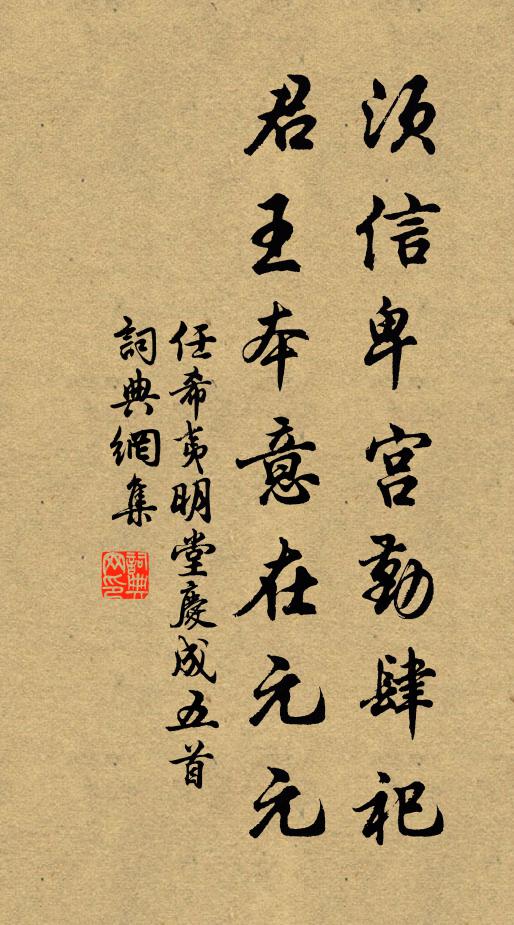 须信卑宫勤肆祀
君王本意在元元
任希夷明堂慶成五首
詞典網集
詞典网印